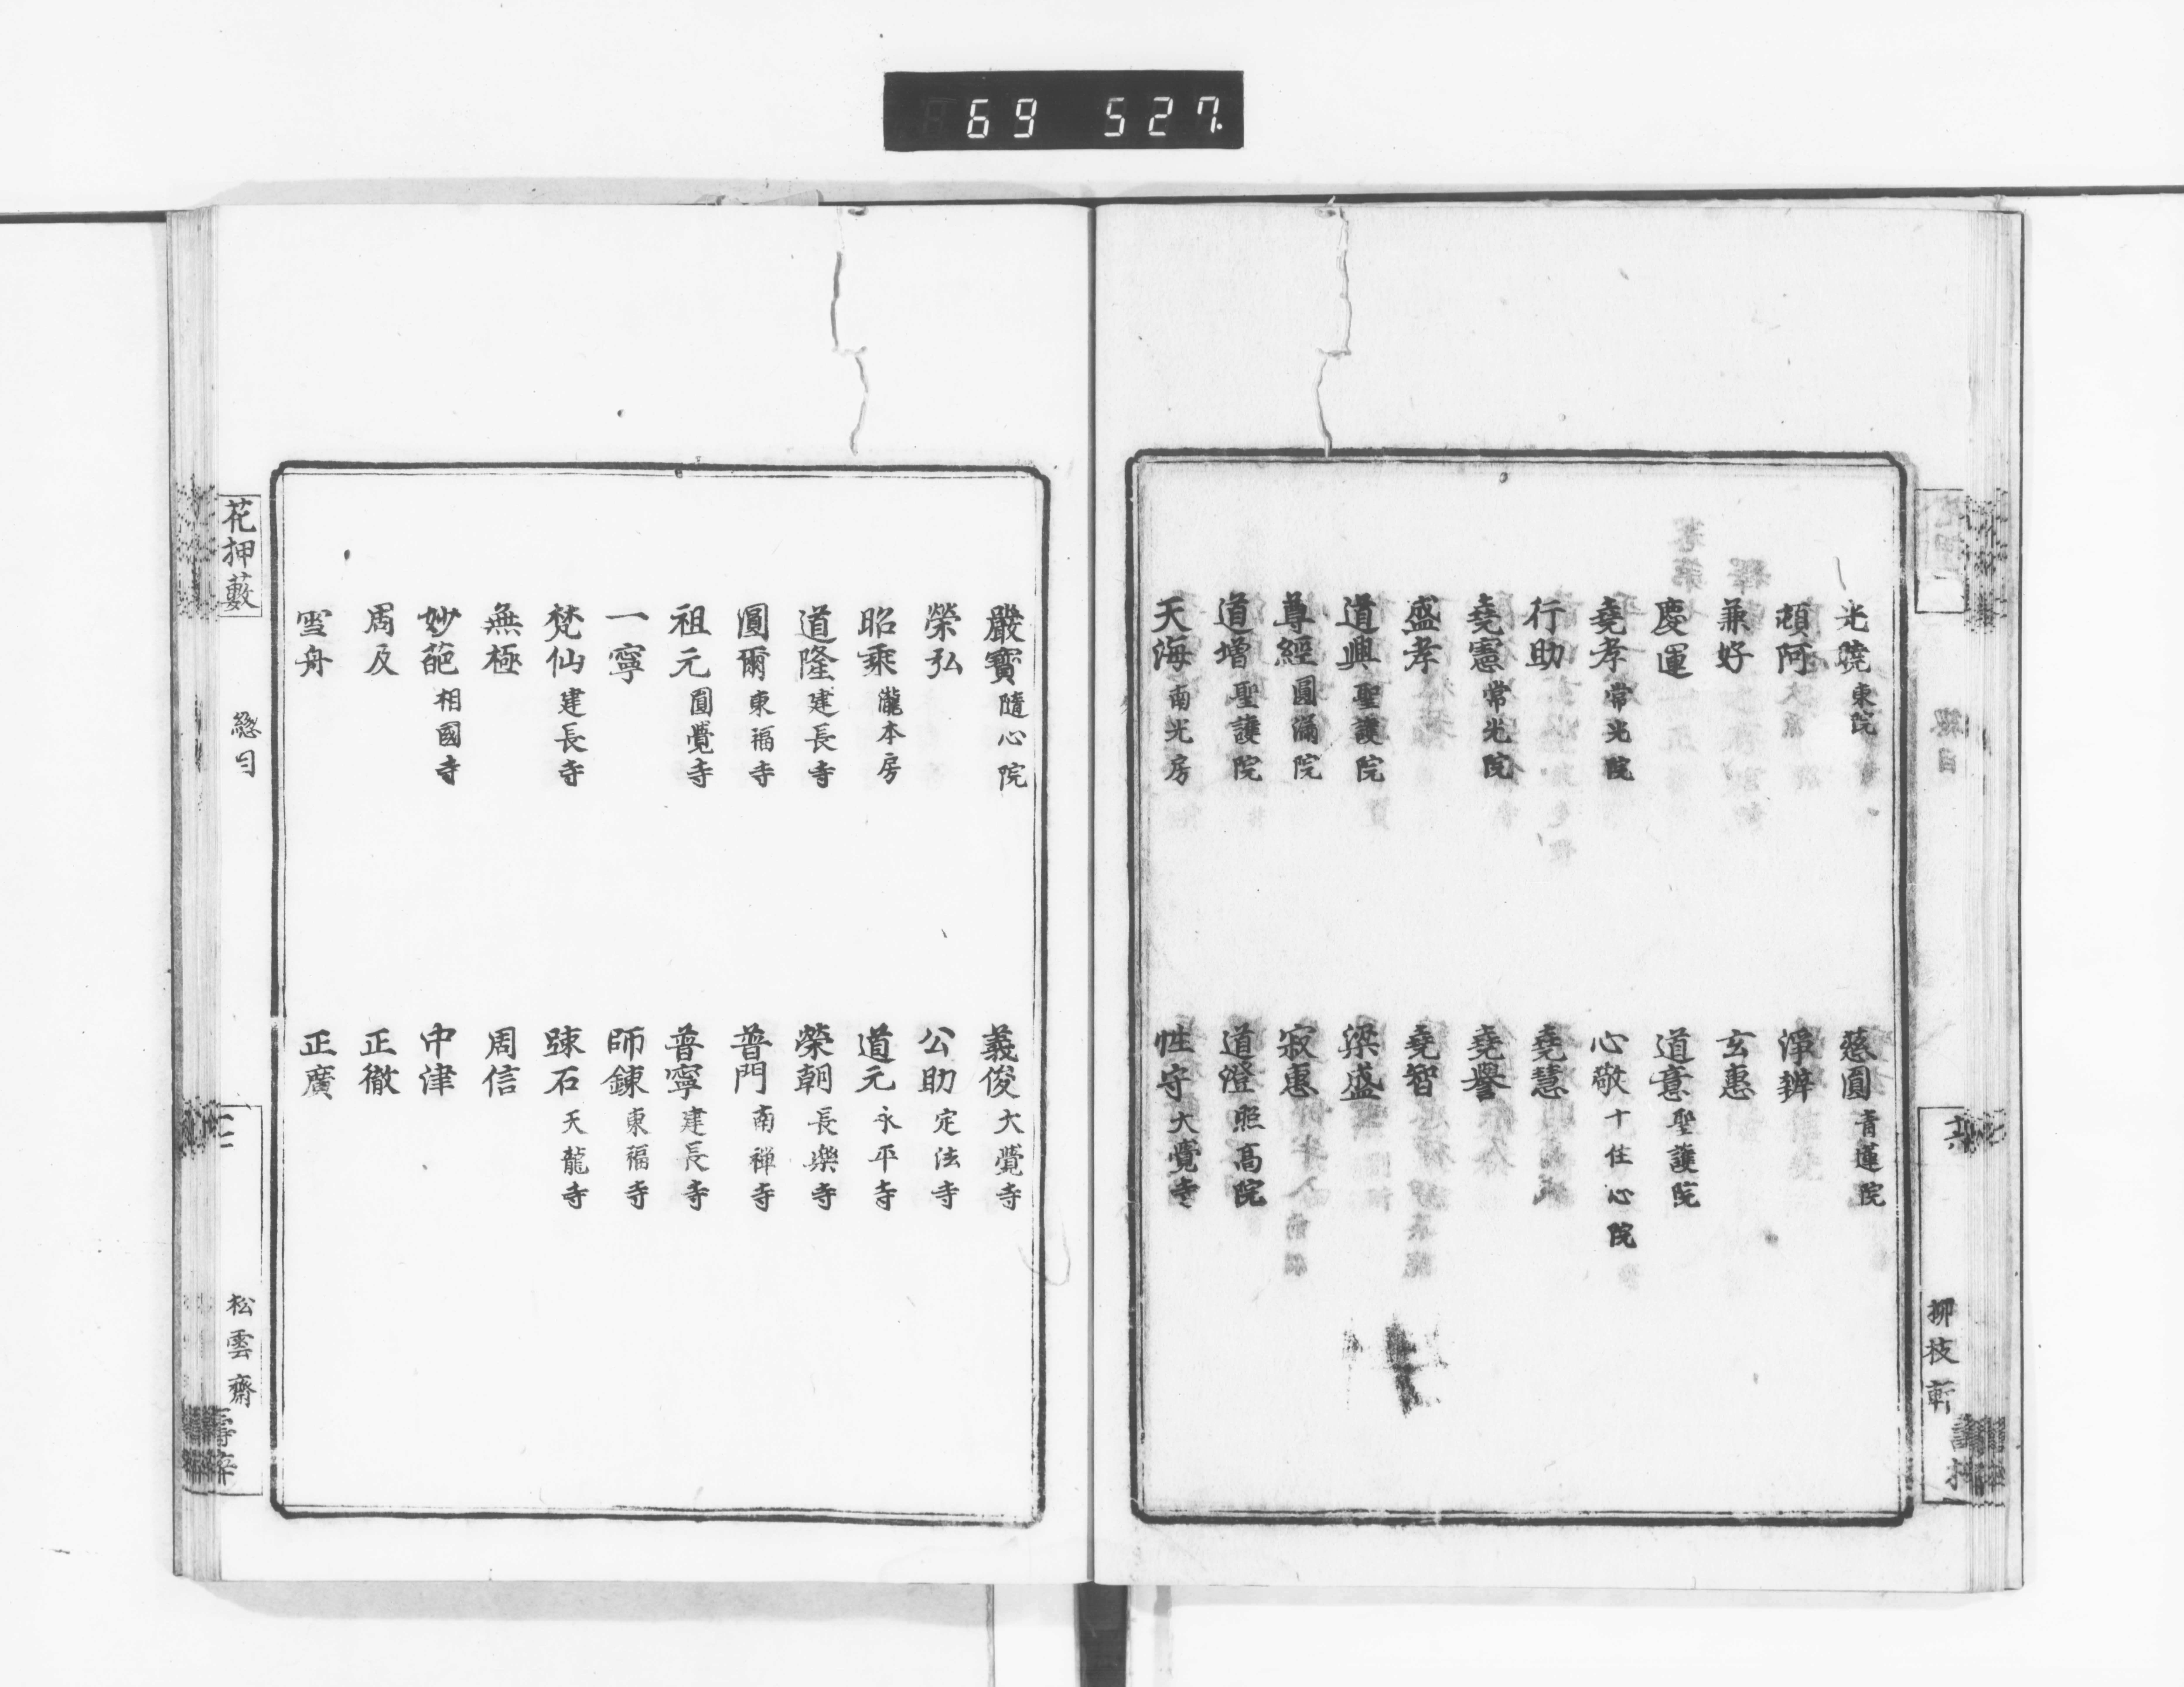 69 527.
光曉東院 慈圓青蓮院
頓阿 淨辨
兼好 玄惠
慶運 道意聖護院
堯孝常光院 心敬十住心院
行助 堯慧
堯憲常光院 堯譽
盛孝 堯智
道興聖護院 梁盛
尊經圓滿院 寂惠
道增聖護院 道澄照高院
天海南光房 性守大覺寺
總目
六
柳枝軒
嚴寶隨心院 義俊大覺寺
榮弘 公助定法寺
昭乘瀧本房 道元永平寺
道隆建長寺 榮朝長樂寺
圓爾東福寺 普門南禅寺
祖元圓覺寺 普寧建長寺
一寧 師鍊東福寺
梵仙建長寺 踈石天龍寺
無極 周信
妙葩相國寺 中津
周及 正徹
雪舟 正廣
花押藪
總目
松雲齋